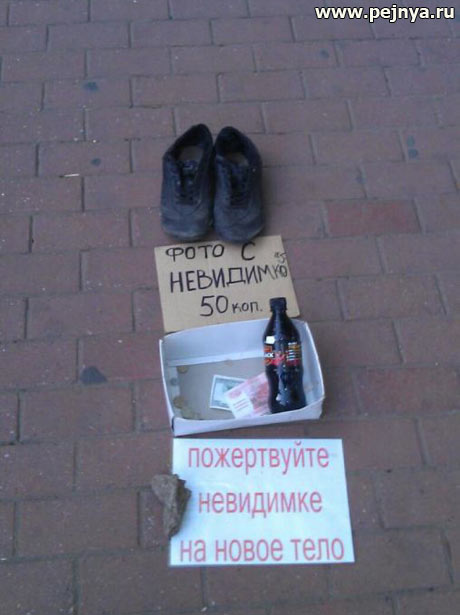 www.pejnya.ru
ФОТО С
НЕВИДИМКО
50 коп.
пожертвуйте
невидимке
на новое тело